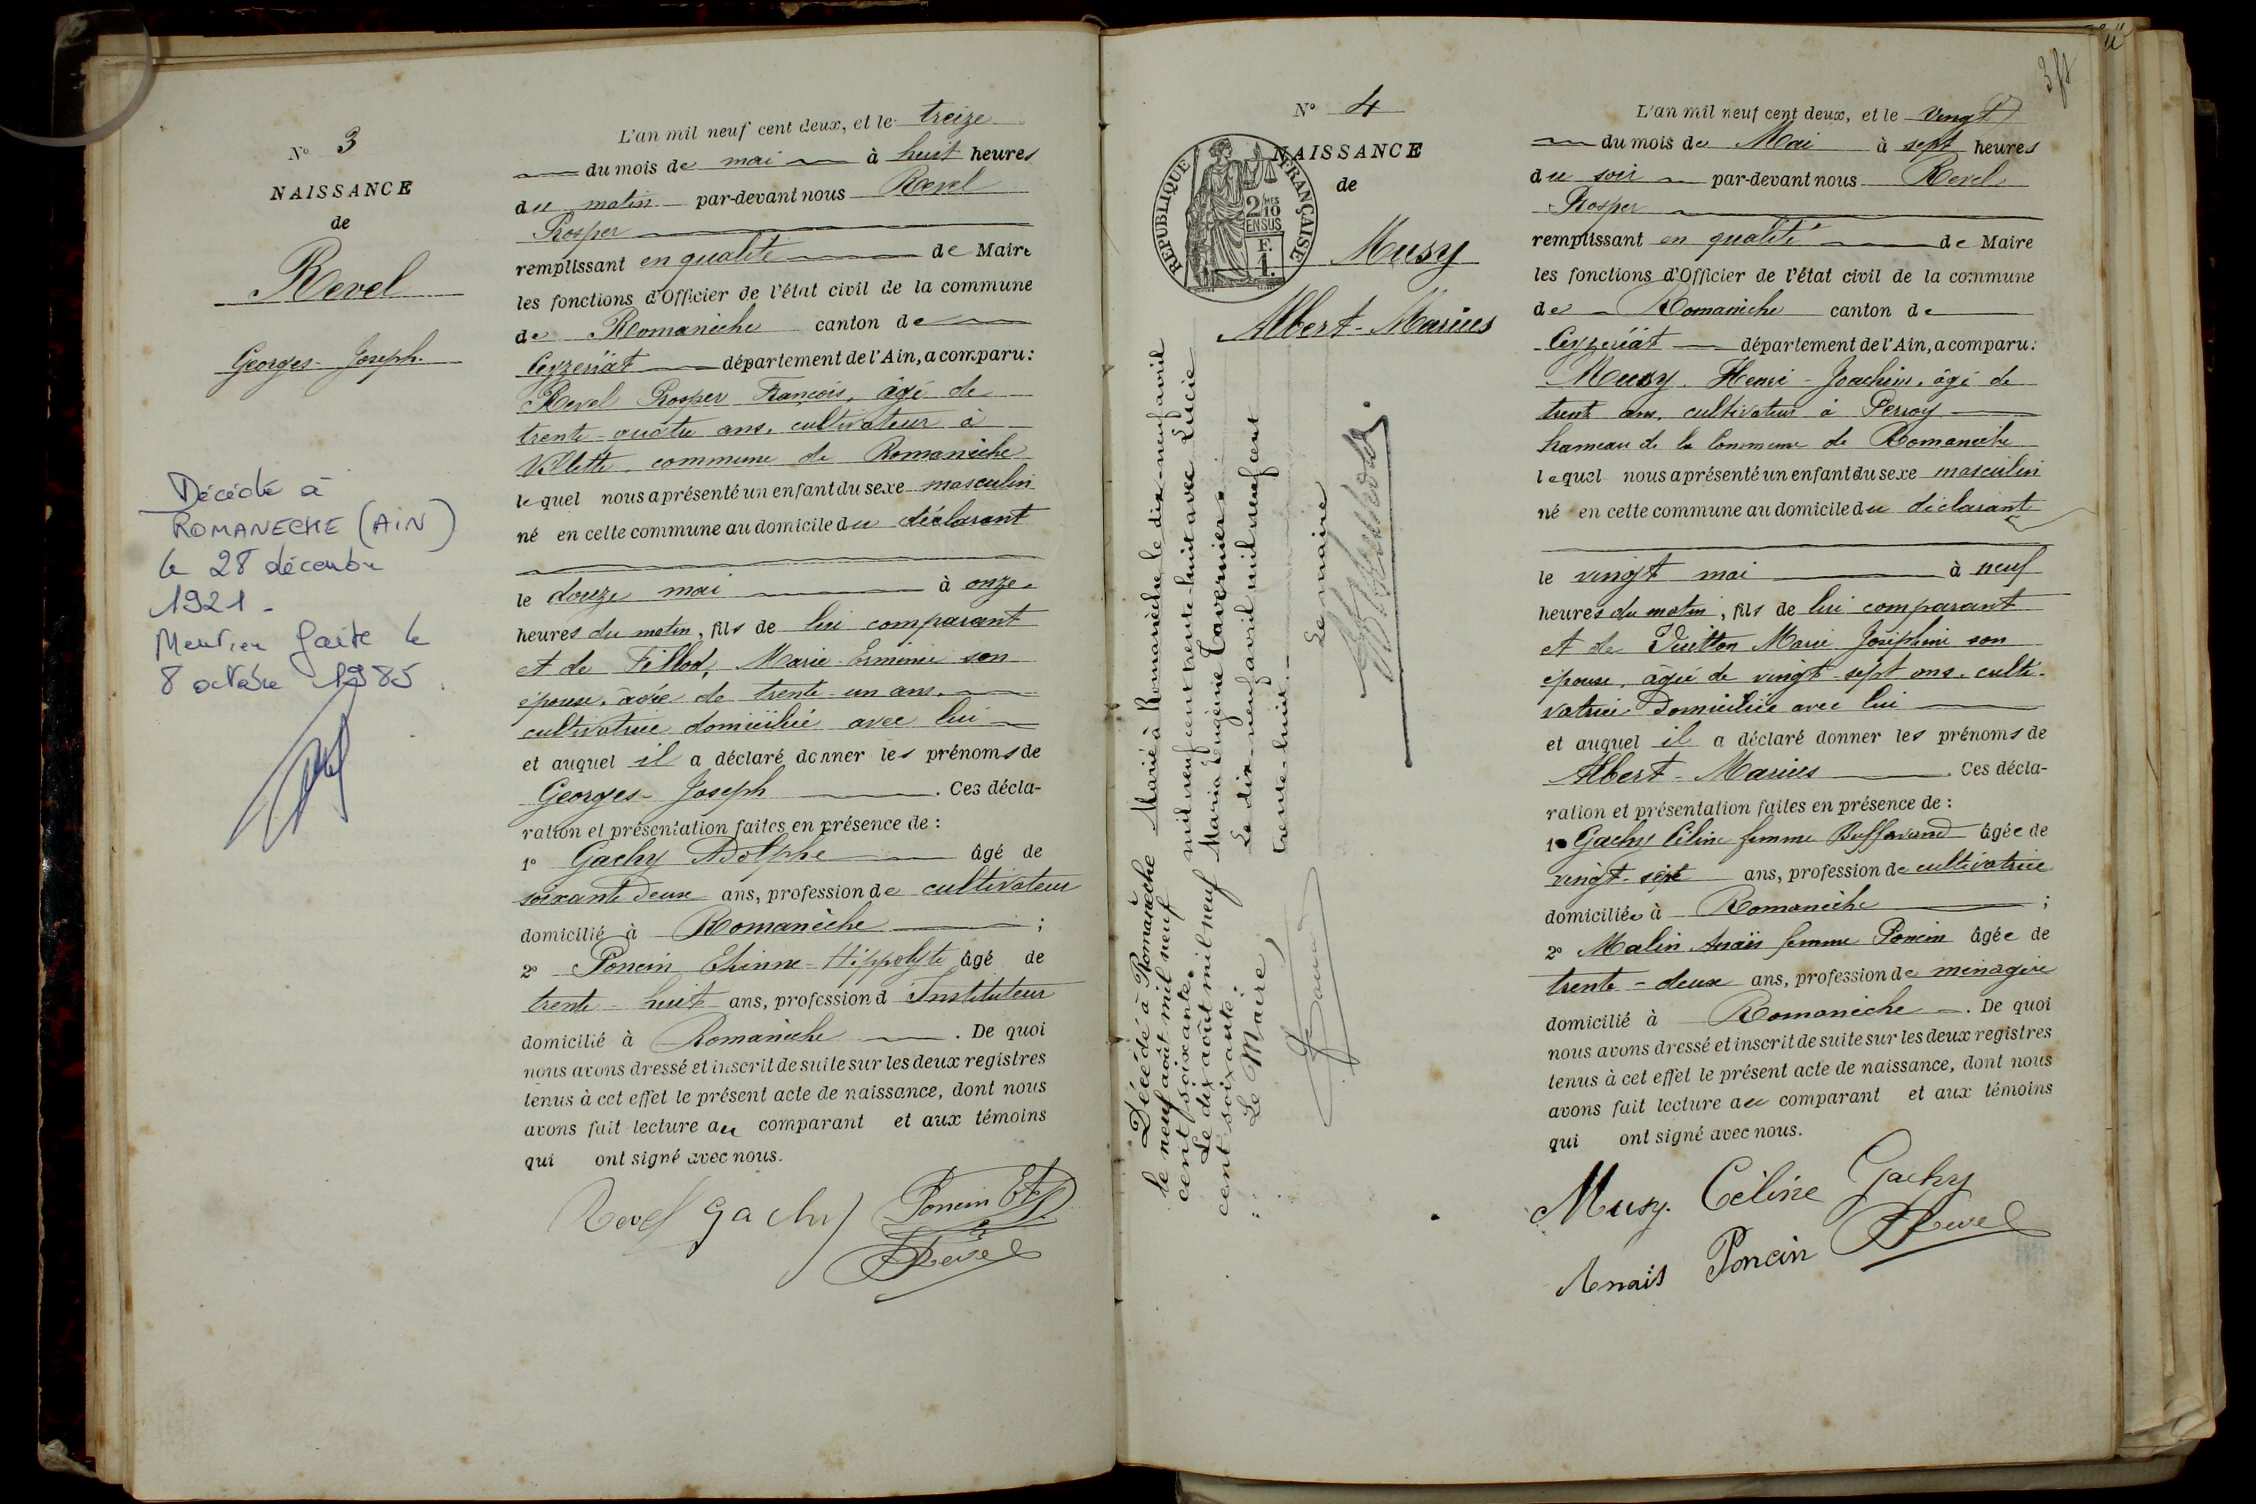 N° 3
NAISSANCE
de
Revel
Georges-Joseph.
Décédé à
ROMANECHE (AIN)
le 28 décembre
1921-
Mention faite le
8 octobre 1985.
L'an mil neuf cent deux, et le treize
du mois de mai à huit heures
du matin par-devant nous Revel
Prosper
remplissant en qualité de Maire
les fonctions d'Officier de l'état civil de la commune
de Romanèche canton de
Ceyzeriat département de l'Ain, a comparu:
Revel Prosper François, âgé de
trente-quatre ans, cultivateur à
Villette, commune de Romanèche
lequel nous a présenté un enfant du sexe masculin
né en cette commune au domicile du déclarant
le douze mai à onze
heures du matin, fils de lui comparant
et de Fillod, Marie-Erminie son
épouse, âgée de trente-un ans,
cultivatrice domiciliée avec lui
et auquel il a déclaré donner les prénoms de
Georges-Joseph. Ces décla-
ration et présentation faites en présence de:
1° Gachy Adolphe âgé de
soixante deux ans, profession de cultivateur
domicilié à Romanèche;
2° Poncin Etienne-Hippolyte âgé de
trente-huit ans, profession d'Instituteur
domicilié à Romanèche. De quoi
nous avons dressé et inscrit de suite sur les deux registres
tenus à cet effet le présent acte de naissance, dont nous
avons fait lecture au comparant et aux témoins
qui ont signé avec nous.
Revel Gachy Poncin Et.
Revel
N° 4
NAISSANCE
de
REPUBLIQUE FRANÇAISE
2/10MES
EN SUS
F.
1.
Musy
Albert-Marius
Marié à Romanèche le dix-neuf avril
mil neuf cent trente-huit avec Lucie
Maria Eugénie Tavernier.
Le dix-neuf avril mil neuf cent
trente-huit.
Le maire
Décédé à Romanèche
le neuf août mil neuf
cent soixante.
Le dix août mil neuf
cent soixante.
Le Maire,
L'an mil neuf cent deux, et le vingt
du mois de Mai à sept heures
du soir par-devant nous Revel
Prosper
remplissant en qualité de Maire
les fonctions d'Officier de l'état civil de la commune
de Romanèche canton de
Ceyzeriat département de l'Ain, a comparu:
Musy Henri-Joachim, âgé de
trente ans, cultivateur à Perroy
hameau de la Commune de Romanèche
lequel nous a présenté un enfant du sexe masculin
né en cette commune au domicile du déclarant
le vingt mai à neuf
heures du matin, fils de lui comparant
et de Marie Joséphine son
épouse, âgée de vingt-sept ans, culti-
vatrice Domiciliée avec lui
et auquel il a déclaré donner les prénoms de
Albert-Marius. Ces décla-
ration et présentation faites en présence de:
1° Gachy Céline femme Buffavand âgée de
vingt-sept ans, profession de cultivatrice
domiciliée à Romanèche;
2° Malin Anaïs femme Poncin âgée de
trente-deux ans, profession de ménagère
domicilié à Romanèche. De quoi
nous avons dressé et inscrit de suite sur les deux registres
tenus à cet effet le présent acte de naissance, dont nous
avons fait lecture au comparant et aux témoins
qui ont signé avec nous.
Musy. Céline Gachy
Anaïs Poncin Revel